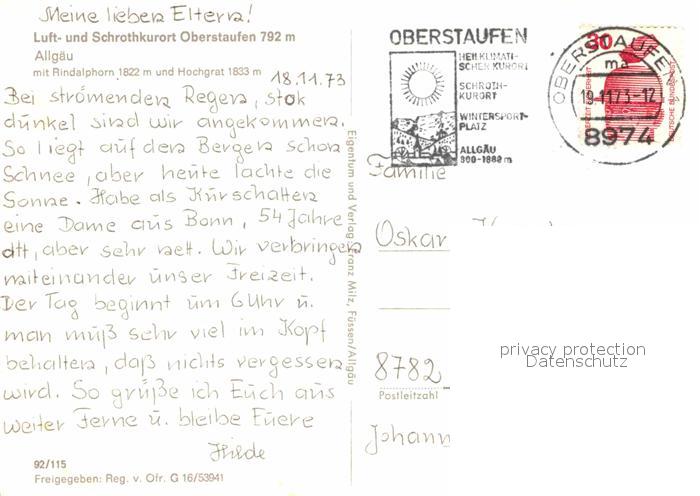 Meine lieben Eltern!
Luft- und Schrothkurort Oberstaufen 792 m
Allgäu
mit Rindalphorn 1822 m und Hochgrat 1833 m
18.11.73
Bei strömenden Regen, stok
dunkel sind wir angekommen.
So liegt auf den Bergen schon
Schnee, aber heute lachte die
Sonne. Habe als Kurschatten
eine Dame aus Bonn, 54 Jahre
alt, aber sehr nett. Wir verbringen
miteinander unser Freizeit.
Der Tag beginnt um 6 Uhr u.
man muß sehr viel im Kopf
behalten, daß nichts vergessen
wird. So grüße ich Euch aus
weiter Ferne u. bleibe Euere
Hilde
92/115
Freigegeben: Reg. v. Ofr. G 16/53941
Eigentum und Verlag Franz Milz, Füssen/Allgäu
OBERSTAUFEN
HEILKLIMATI-
SCHER KURORT
SCHROTH-
KURORT
WINTERSPORT-
PLATZ
ALLGÄU
800-1882 m
OBERSTAUFEN
ma
19.11.73-12
8974
30
DEUTSCHE BUNDESPOST
Familie
Oskar
8782
Postleitzahl
Johann
privacy protection
Datenschutz